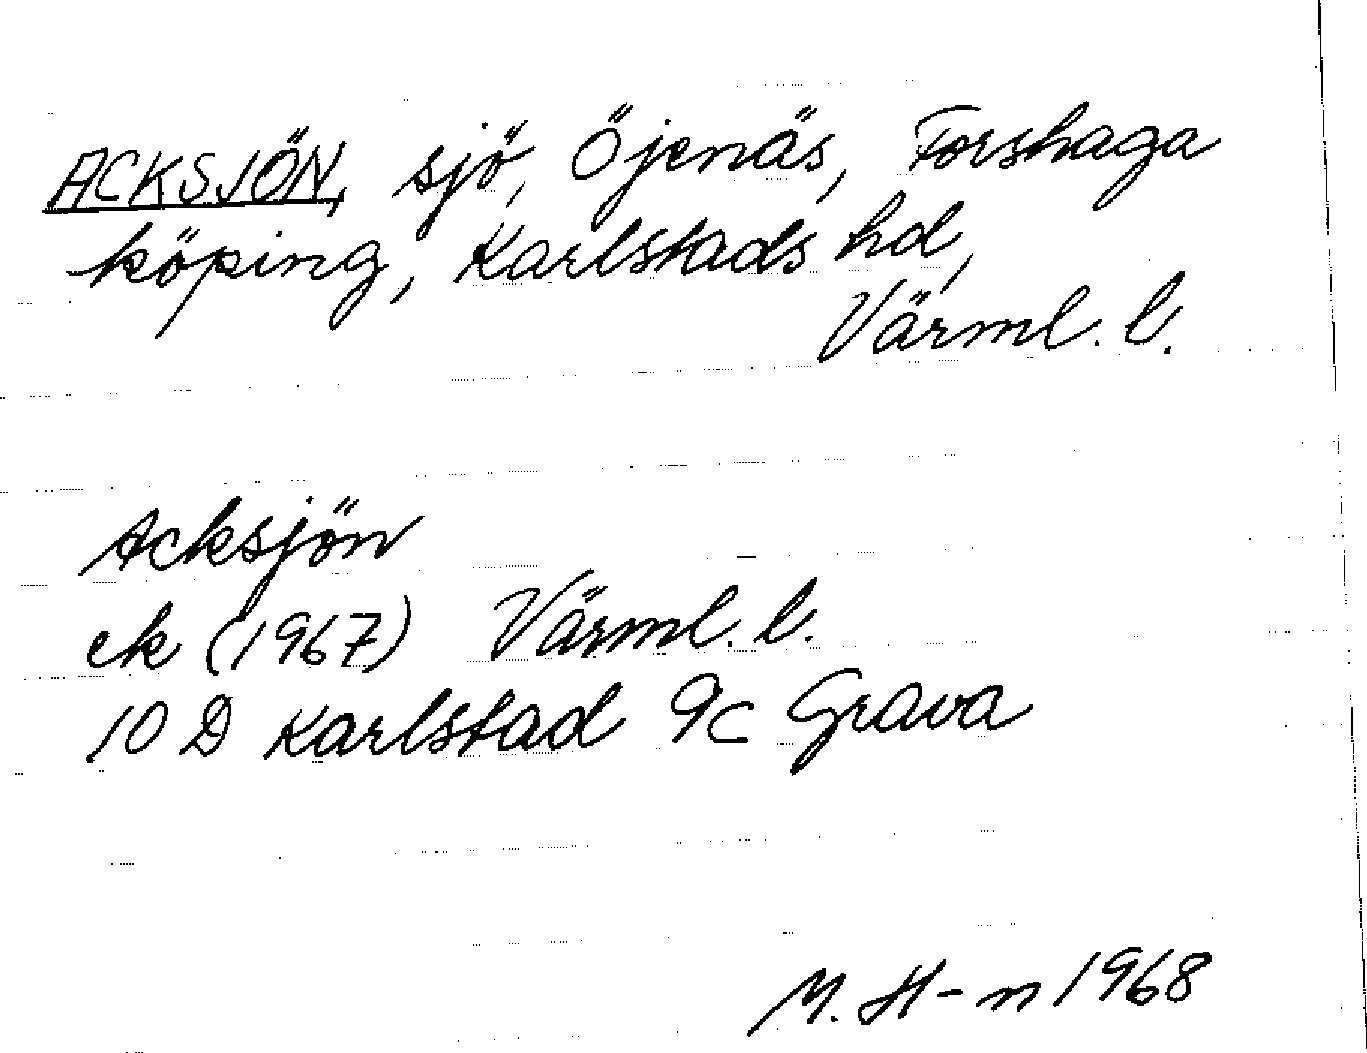 ACKSJÖN, sjö, Öjenäs, Forshaga
köping, Karlstads hd,
Värml. l.
Acksjön
ek (1967) Värml. l.
10 D Karlstad 9c Grava
M. H-n 1968